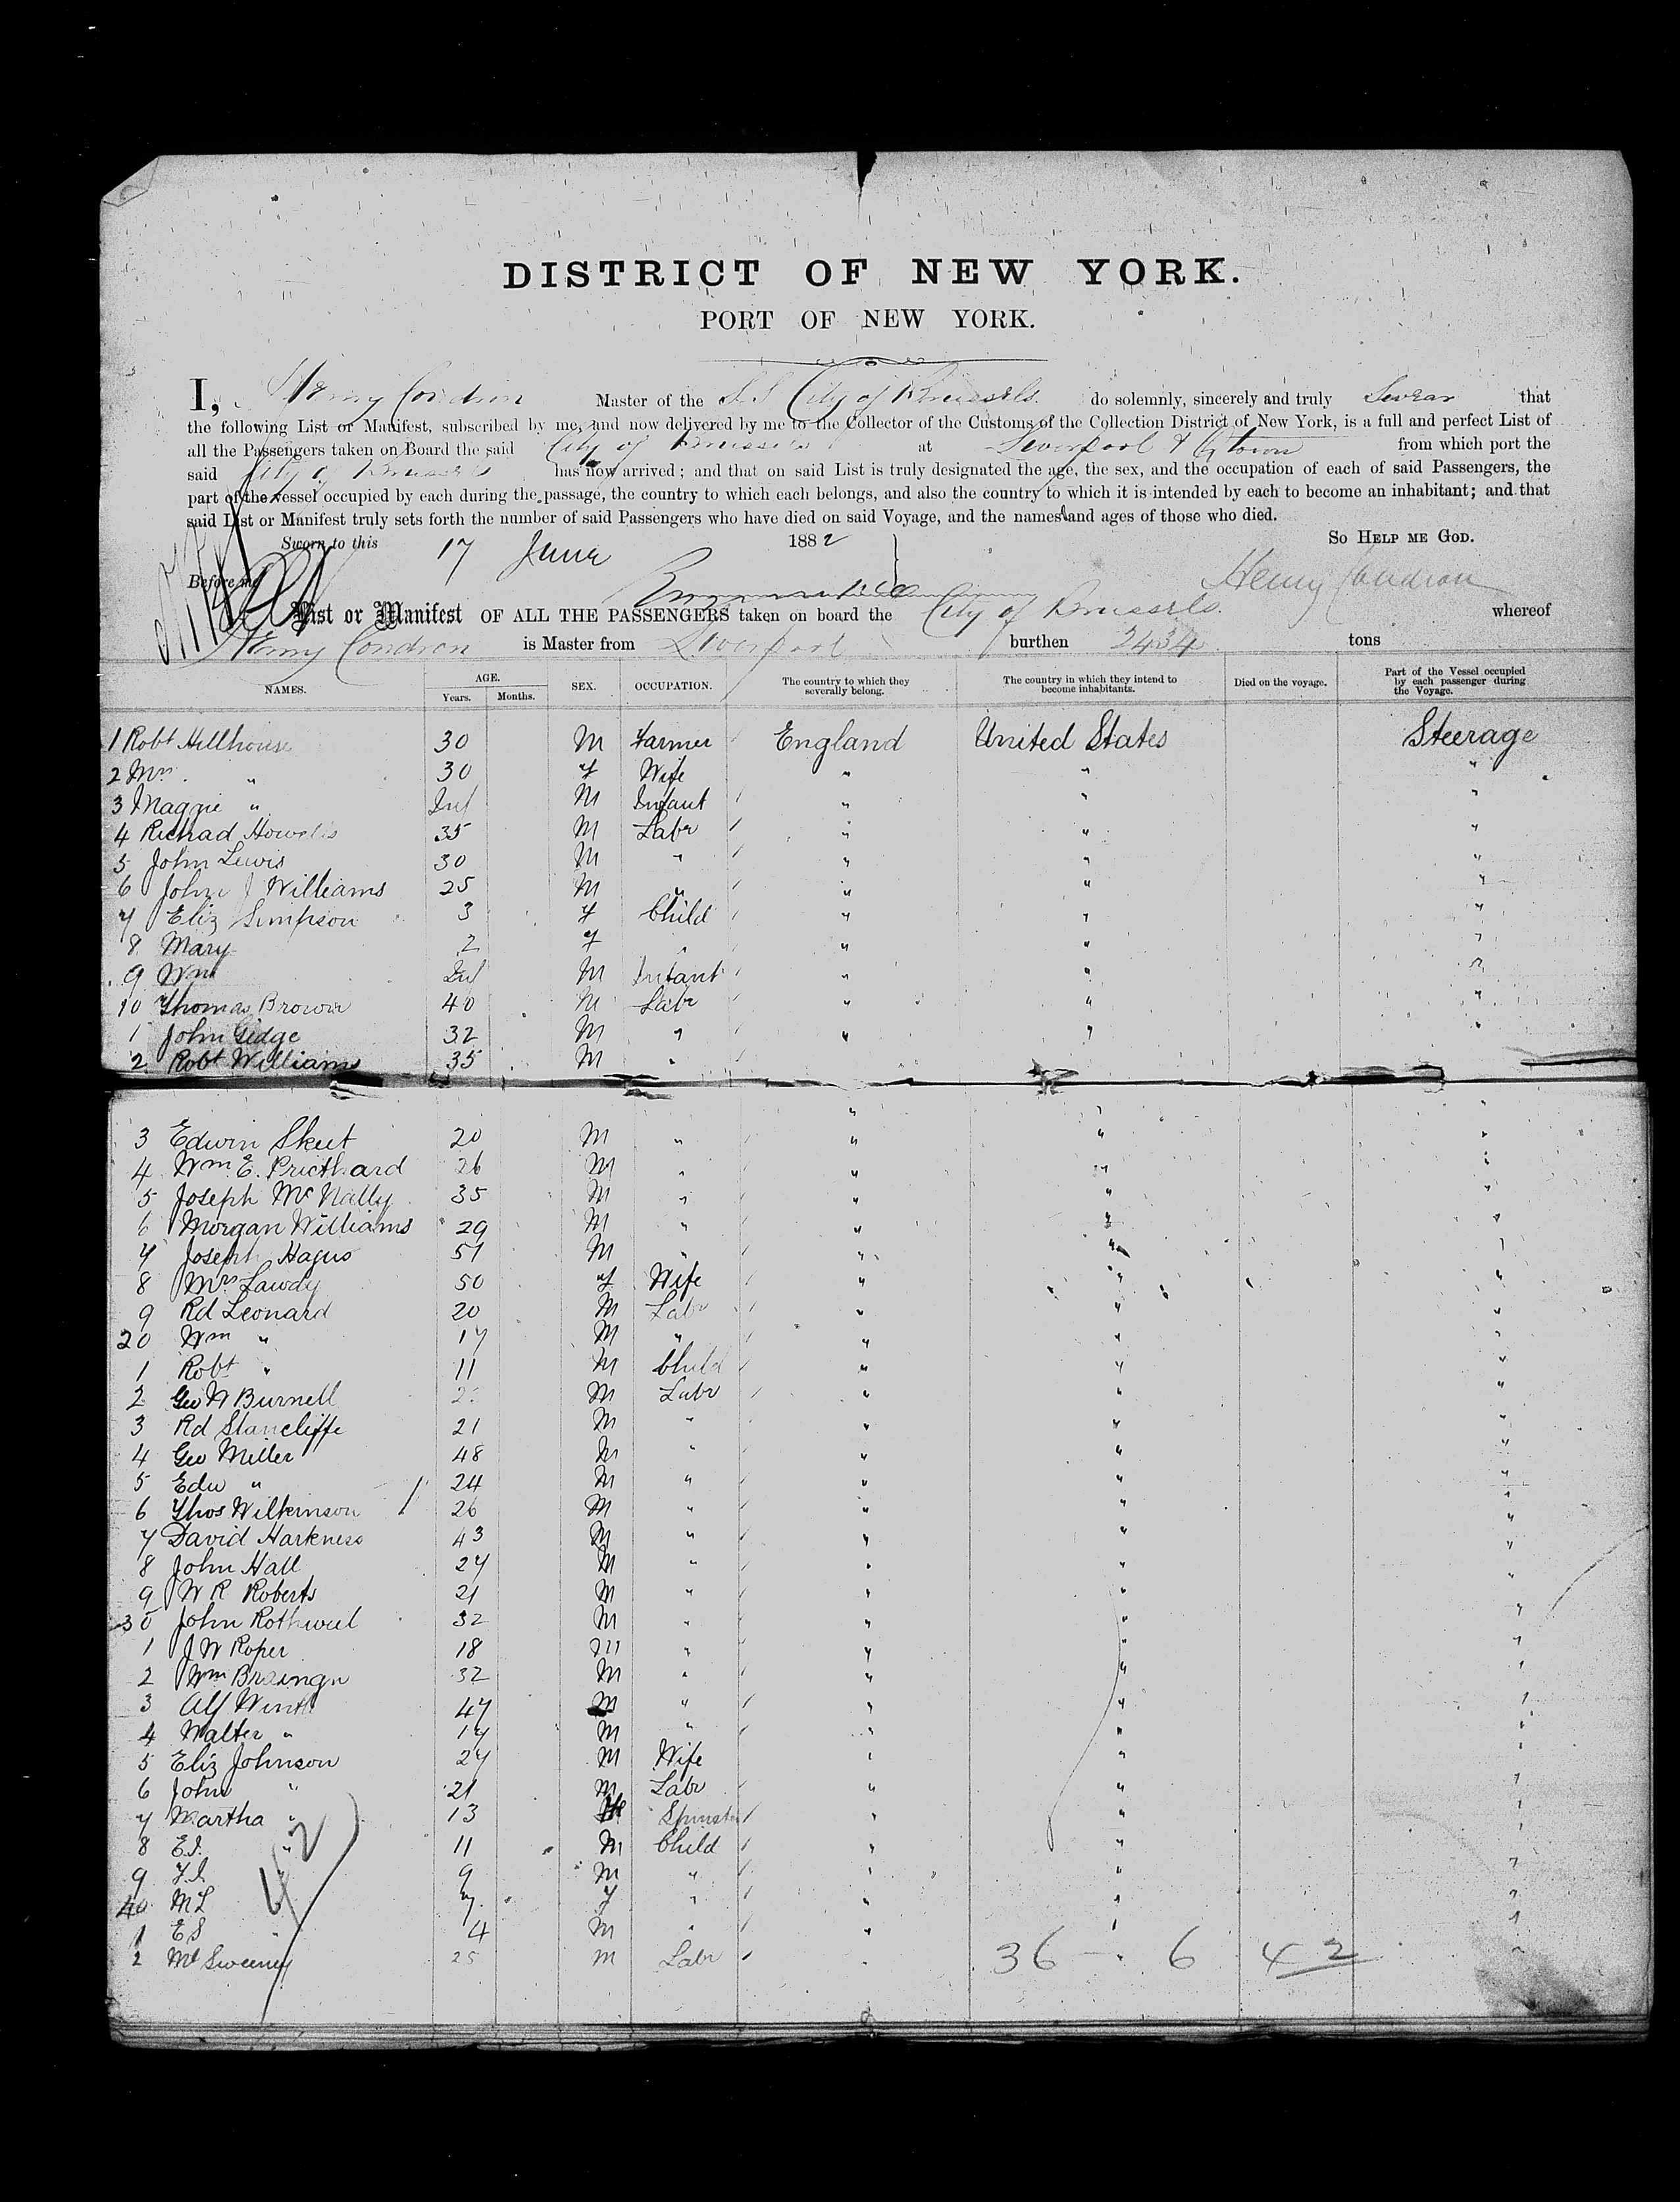 DISTRICT OF NEW YORK.
PORT OF NEW YORK.
I, Henry Condron Master of the S.S. City of Brussels. do solemnly, sincerely and truly Swear that
the following List or Manifest, subscribed by me, and now delivered by me to the Collector of the Customs of the Collection District of New York, is a full and perfect List of
all the Passengers taken on Board the said City of Brussels at Liverpool & Qtown from which port the
said City of Brussels has now arrived; and that on said List is truly designated the age, the sex, and the occupation of each of said Passengers, the
part of the vessel occupied by each during the passage, the country to which each belongs, and also the country to which it is intended by each to become an inhabitant; and that
said List or Manifest truly sets forth the number of said Passengers who have died on said Voyage, and the names and ages of those who died.
Sworn to this 17 June 1882 So Help me God.
Before me Henry Condron
List or Manifest OF ALL THE PASSENGERS taken on board the City of Brussels. whereof
Henry Condron is Master from Liverpool burthen 2434 tons
NAMES. AGE. Years. Months. SEX. OCCUPATION. The country to which they severally belong. The country in which they intend to become inhabitants. Died on the voyage. Part of the Vessel occupied by each passenger during the Voyage.
1 Robt Hillhouse 30 M Farmer England United States Steerage
2 Mrs. " 30 f Wife " " "
3 Maggie " Inf M Infant " " "
4 Richad Howells 35 M Labr " " "
5 John Lewis 30 M " " " "
6 John J Williams 25 M " " " "
7 Eliz Simpson 3 f Child " " "
8 Mary 2 f " " " "
9 Wm Inf M Infant " " "
10 Thomas Brown 40 M Labr " " "
1 John Gidge 32 M " " " "
2 Robt Williams 35 M " " " "
3 Edwin Skeet 20 M " " " "
4 Wm E. Pricthard 26 M " " " "
5 Joseph McNally 35 M " " " "
6 Morgan Williams 29 M " " " "
7 Joseph Hagus 51 M " " " "
8 Mrs Lawdy 50 f Wife " " "
9 Rd Leonard 20 M Labr " " "
20 Wm " 17 M " " " "
1 Robt " 11 M Child " " "
2 Geo Burnell M Labr " " "
3 Rd Stancliffe 21 M " " " "
4 Geo Miller 48 M " " " "
5 Edw " 24 M " " " "
6 Thos Wilkinson 26 M " " " "
7 David Harkness 43 M " " " "
8 John Hall 27 M " " " "
9 W R Roberts 21 M " " " "
30 John Rothwell 32 M " " " "
1 J W Roper 18 M " " " "
2 Wm 32 M " " " "
3 Alf 47 M " " " "
4 Walter " 17 M " " " "
5 Eliz Johnson 27 M Wife " " "
6 John " 21 M Labr " " "
7 Martha " 13 Spinster " " "
8 E.I. " 11 M Child " " "
9 F.I. " 9 M " " " "
40 M L 7 f " " " "
1 E S 4 M " " " "
2 Mc Sweeney 25 M Labr "
36 - 6 42
42